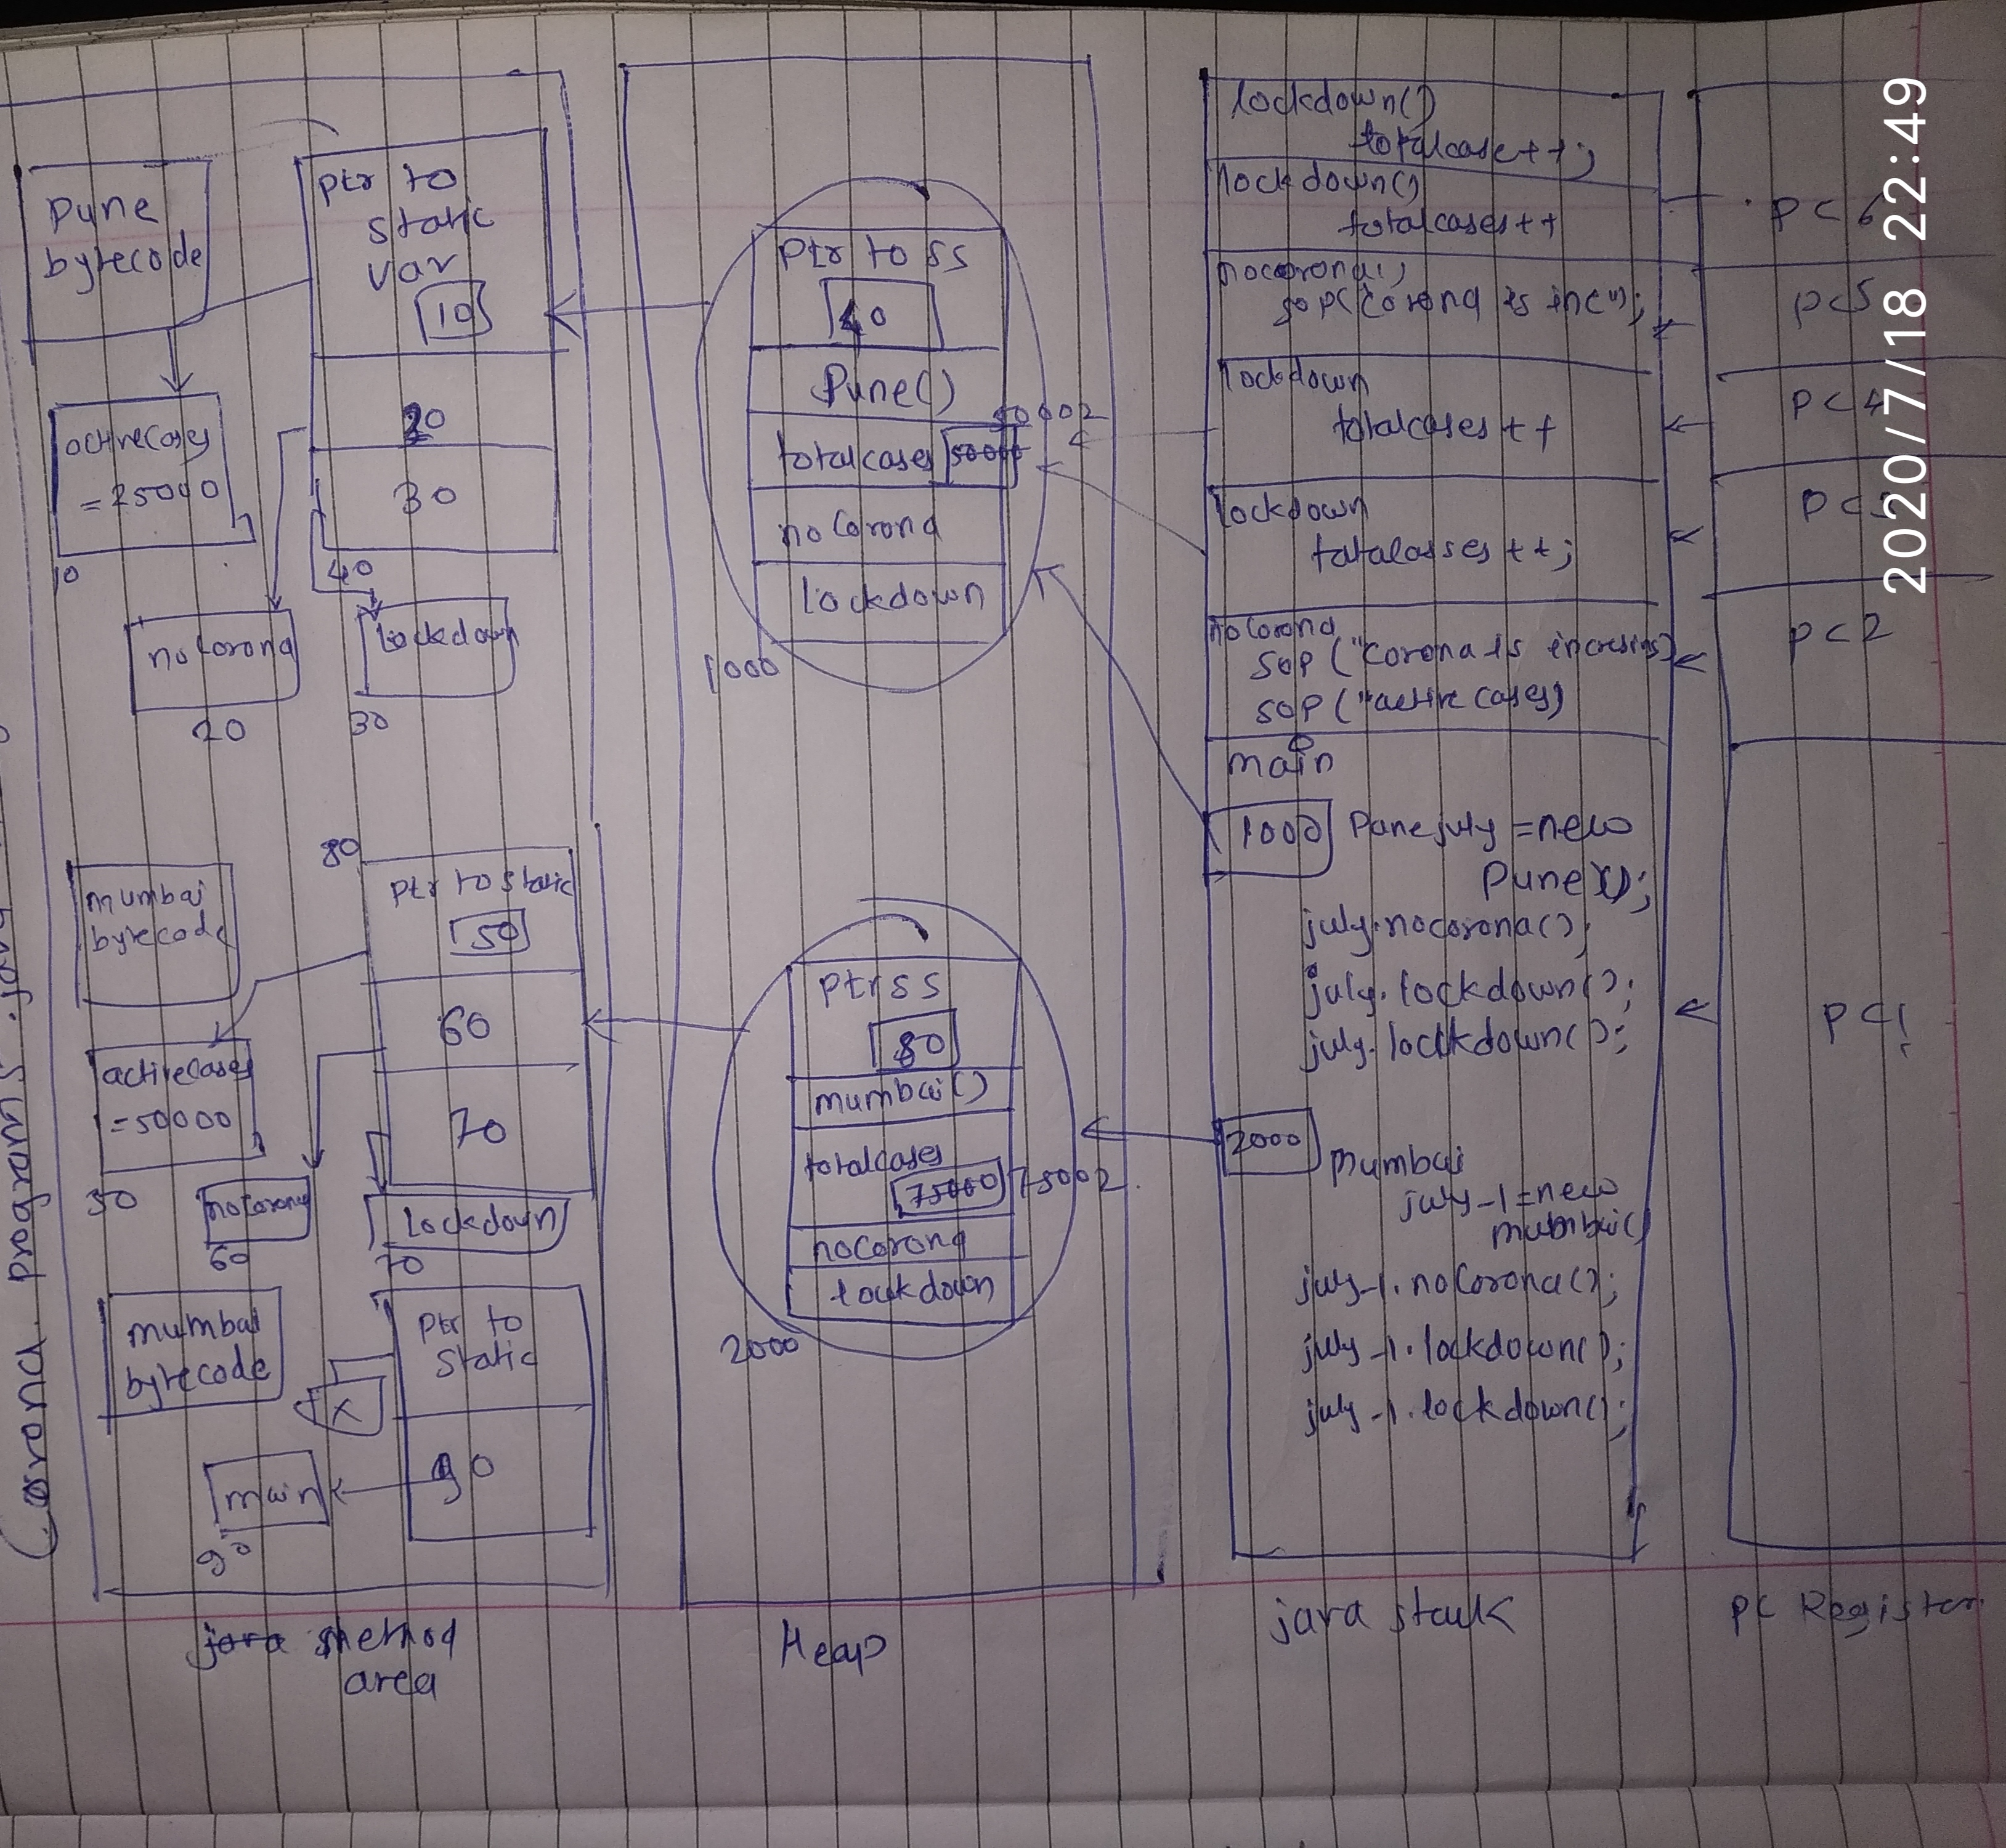 Pune
bytecode
ptr to
static
var
10
20
30
40
activecases
=25000
10
nocorona
20
lockdown
30
80
mumbai
bytecode
ptr to static
50
60
70
activecases
=50000
50
nocorona
60
Lockdown
70
mumbai
bytecode
ptr to
static
X
90
main
90
method
area
ptr to ss
40
Pune()
50002
totalcases 50000
nocorona
lockdown
1000
ptr ss
80
mumbai()
totalcases
75000 75002
nocorona
lockdown
2000
Heap
lockdown()
totalcase++;
lockdown()
totalcases++
nocorona()
sop(corona is inc");
lockdown
totalcases++
lockdown
totalasses++;
nocorona
sop("corona is incresing)
sop("active cases)
main
1000 Pune july =new
Pune();
july.nocorona();
july.lockdown();
july.lockdown();
2000 mumbai
july-1=new
mumbai()
july-1.nocorona();
july-1.lockdown();
july-1.lockdown();
java stack
PC6
PC5
PC4
PC2
PC1
PC Register
Corona programs
2020/7/18 22:49